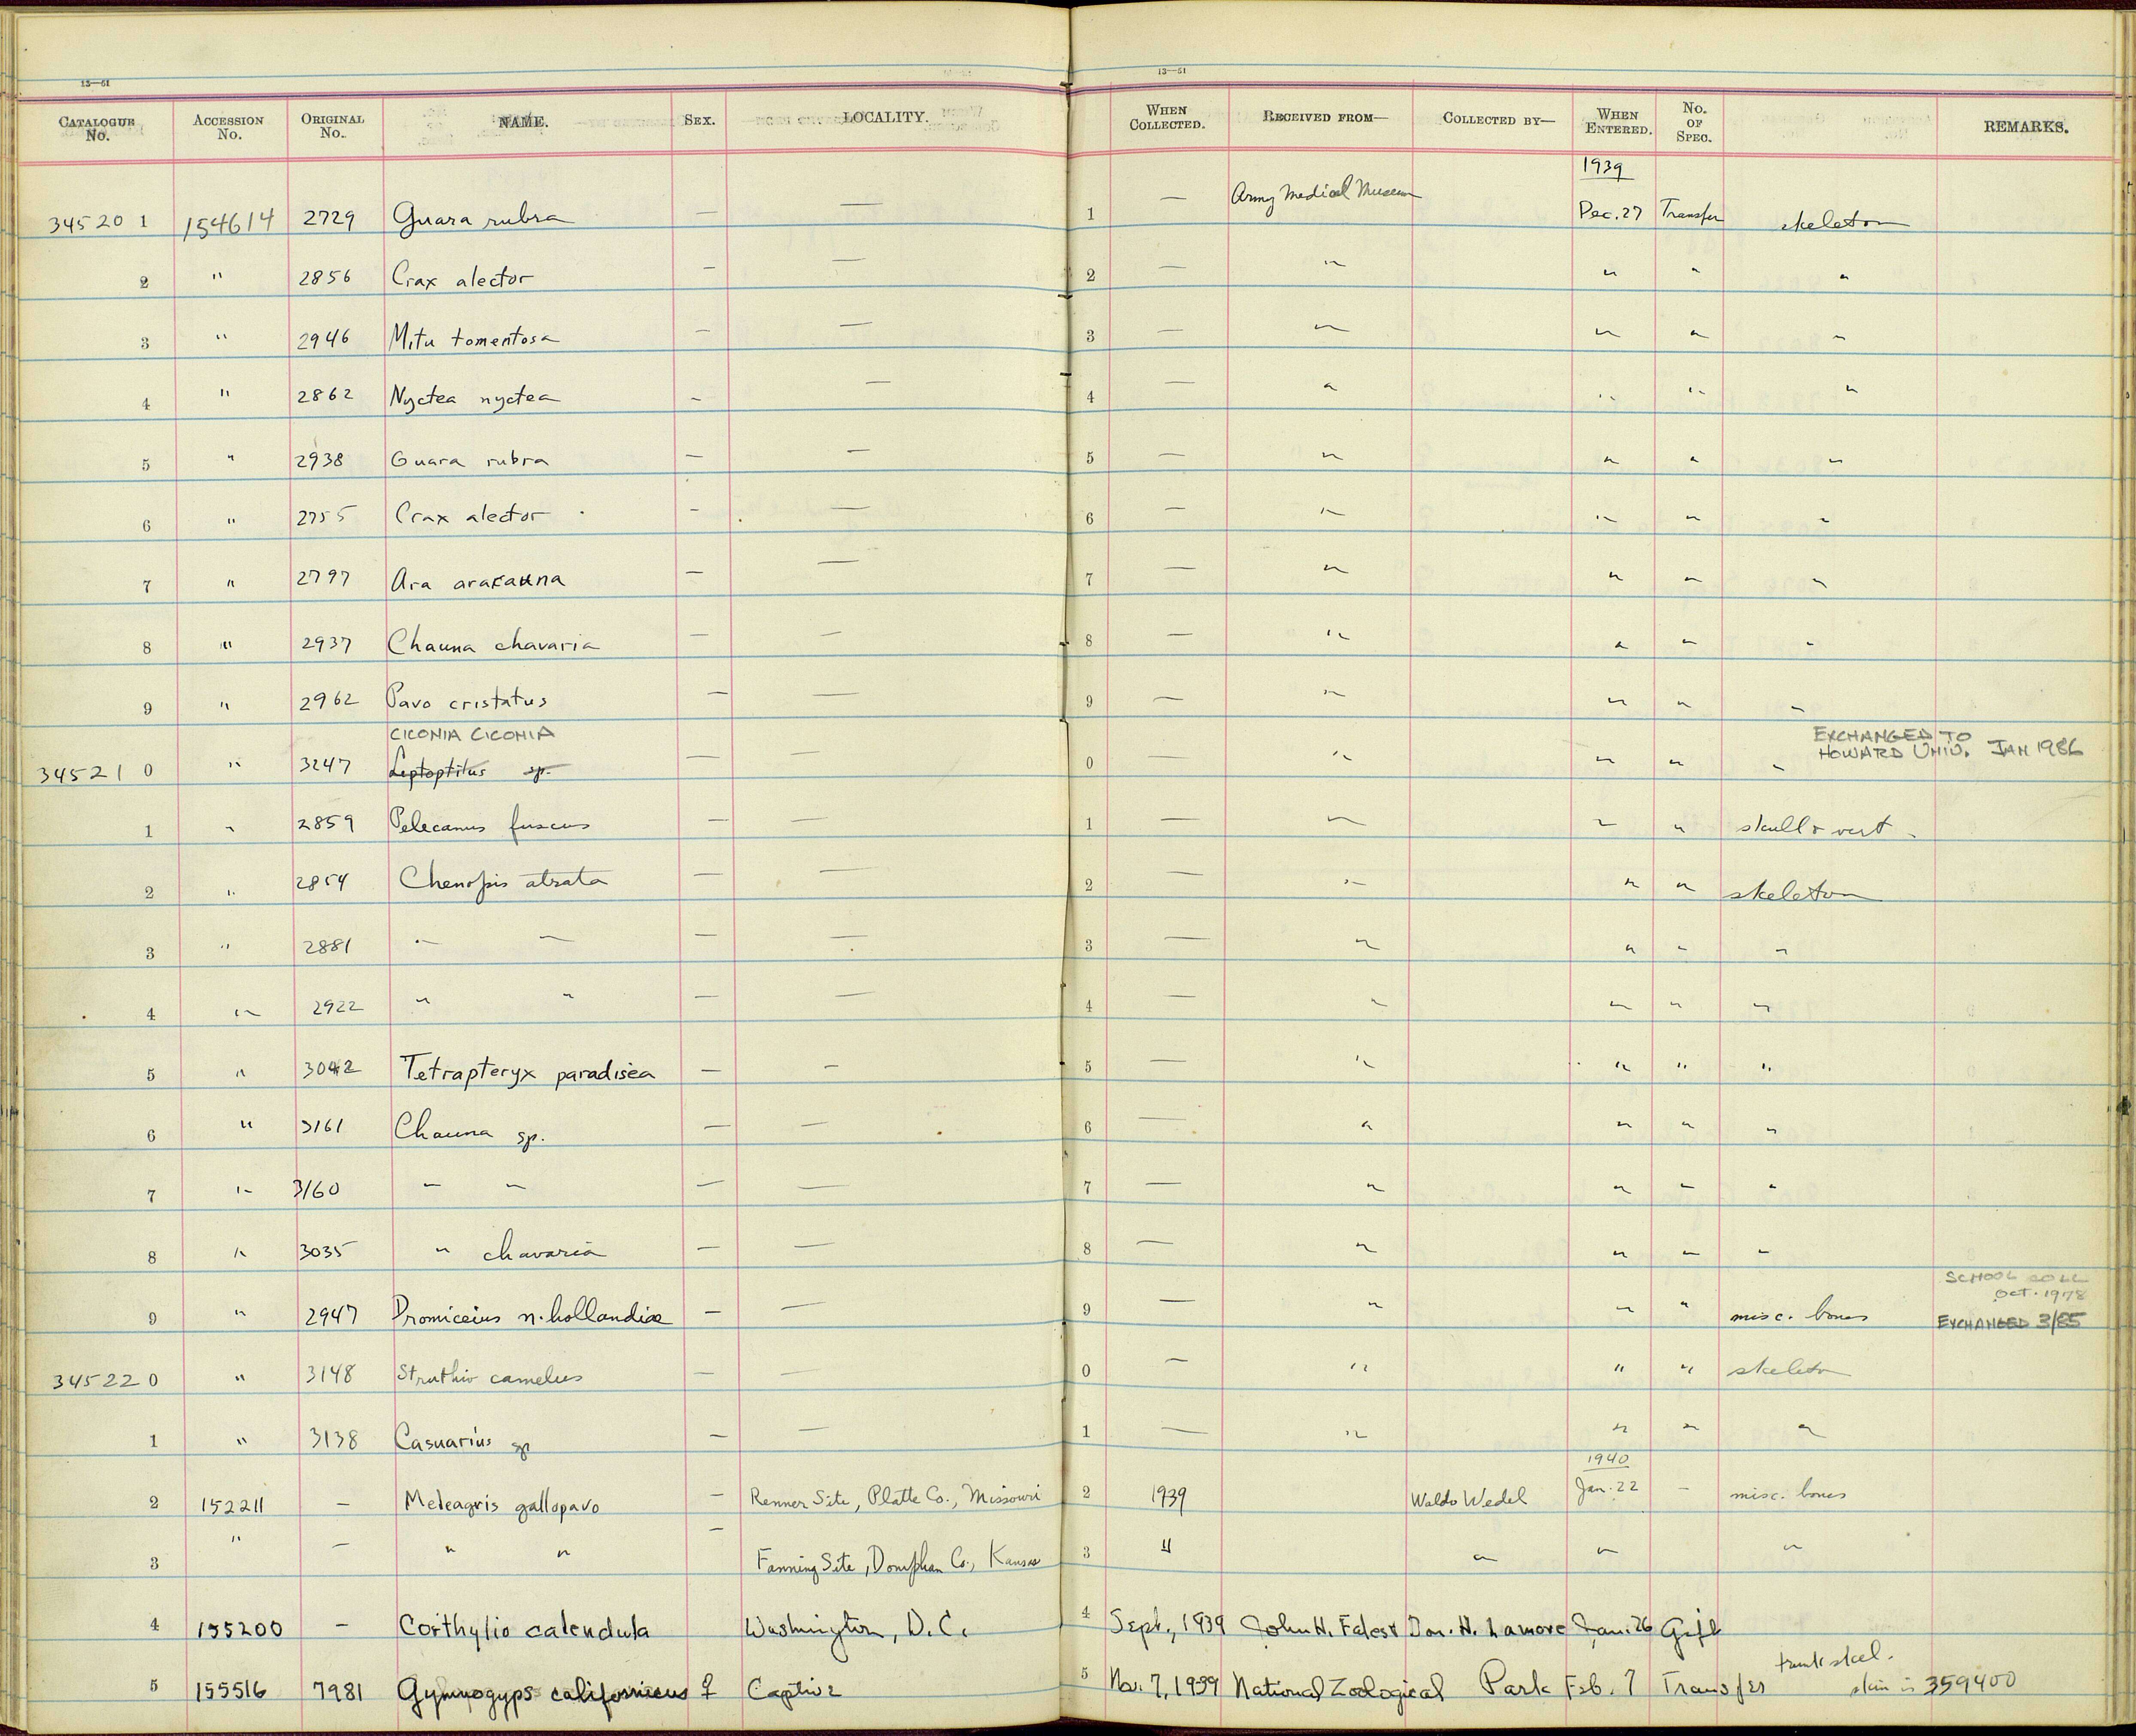 13—51 13—51
CATALOGUE No. ACCESSION No. ORIGINAL No. NAME. SEX. LOCALITY. WHEN COLLECTED. RECEIVED FROM— COLLECTED BY— WHEN ENTERED. No. OF SPEC. REMARKS.
1939
345201 154614 2729 Guara rubra — — 1 — Army Medical Museum Dec. 27 Transfer skeleton
2 " 2856 Crax alector — — 2 — " " " "
3 " 2946 Mitu tomentosa — — 3 — " " " "
4 " 2862 Nyctea nyctea — — 4 — " " " "
5 " 2938 Guara rubra — — 5 — " " " "
6 " 2755 Crax alector — — 6 — " " " "
7 " 2797 Ara ararauna — — 7 — " " " "
8 " 2937 Chauna chavaria — — 8 — " " " "
9 " 2962 Pavo cristatus — — 9 — " " " "
CICONIA CICONIA EXCHANGED TO
345210 " 3247 Leptoptilus sp. — — 0 — " " " " HOWARD UNIV. JAN 1986
1 " 2859 Pelecanus fuscus — — 1 — " " " skull & vert.
2 " 2854 Chenopis atrata — — 2 — " " " skeleton
3 " 2881 " " — — 3 — " " " "
4 " 2922 " " — — 4 — " " " "
5 " 3042 Tetrapteryx paradisea — — 5 — " " " "
6 " 3161 Chauna sp. — — 6 — " " " "
7 " 3160 " " — — 7 — " " " "
8 " 3035 " chavaria — — 8 — " " " "
SCHOOL COLL
Oct. 1978
9 " 2947 Dromiceius n. hollandiae — — 9 — " " " misc. bones EXCHANGED 3/85
345220 " 3148 Struthio camelus — — 0 — " " " skeleton
1 " 3138 Casuarius sp — — 1 — " " " "
1940
2 152211 — Meleagris gallopavo — Renner Site, Platte Co., Missouri 2 1939 Waldo Wedel Jan. 22 — misc. bones
3 " — " " — Fanning Site, Doniphan Co., Kansas 3 " " " "
4 155200 — Corthylio calendula Washington, D.C. 4 Sept., 1939 John H. Fales & Don. H. Lamore Jan. 26 Gift
trunk skel.
5 155516 7981 Gymnogyps californicus ♀ Captive 5 Nov. 7, 1939 National Zoological Park Feb. 7 Transfer skin is 359400